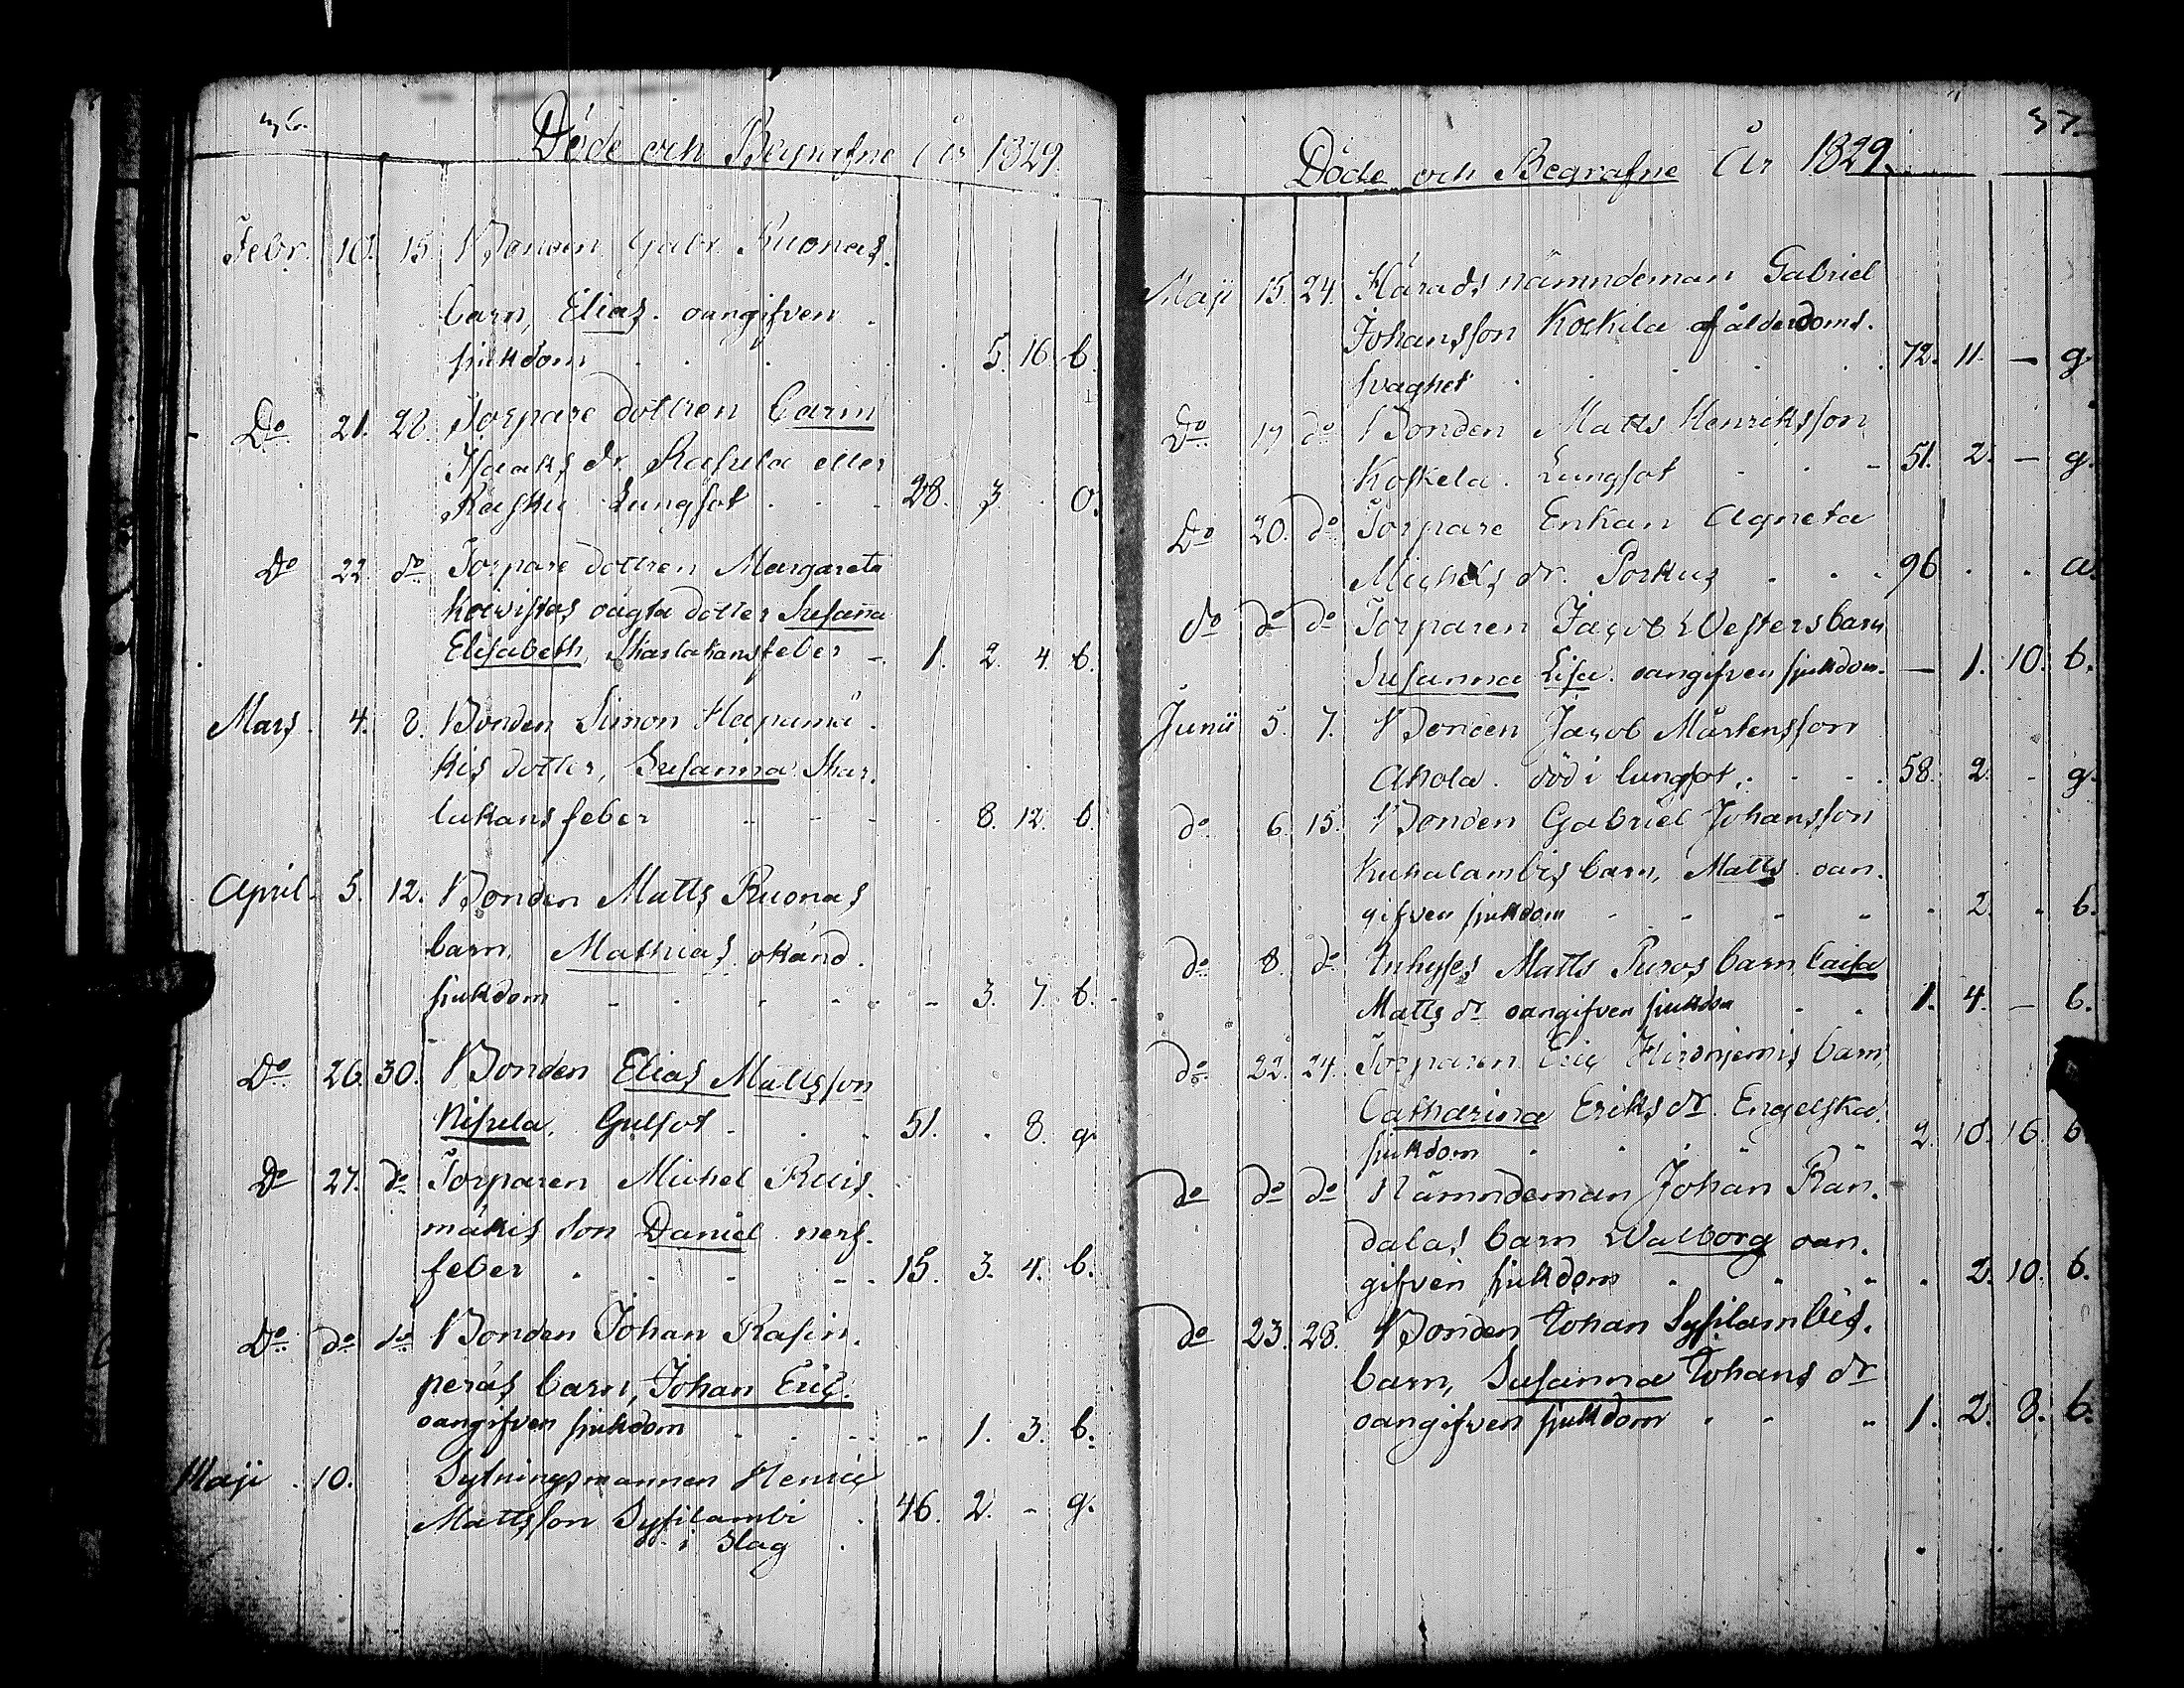 36.
Döde och Begrafne År 1829.
Febr. 10. 15. Bonden Gabr. Ruonas
barn, Elias. oangifven
sjukdom . . . . 5. 16. b.
Do 21. 28. Torpare dottren Carin
Isaaks dr. Rasula eller
Rasku Lungsot . . . 28. 3. . o.
Do 22. do Torpare dottren Margareta
Koivistos oägta dotter Susana
Elisabeth, Skarlakansfeber - 1. 2. 4. b.
Mars. 4. 8. Bonden Simon Hapamä
kis dotter, Susanna Skar.
lakans feber - - - . 8. 12. b.
April. 5. 12. Bonden Matts Ruonas
barn, Mathias okänd.
sjukdom - . - - - 3. 7. b.
Do 26. 30. Bonden Elias Mattsson
Nisula, Gulsot - . . 51. . 8. g.
Do 27. do Torparen Michel Ruis.
mäkis son Daniel nerf.
feber . - - - 15. 3. 4. b.
Do do do Bonden Johan Rasin.
peräs barn, Johan Eric.
oangifven sjukdom - . - - 1. 3. b.
Maji 10. Sytningsmannen Henric
Mattsson Sysilambi . 46. 2. - g.
i Slag .
37.
Döde och Begrafne År 1829.
Maji 15. 24. Härads nämndeman Gabriel
Johansson Kockila af ålderdoms.
svaghet . . . . . 72. 11. - g.
Do 17 do Bonden Matts Henriksson
Koskela. Lungsot - . - 51. 2. - g.
Do 20. do Torpare Enkan Agneta
Michels dr. Porkus . . . 96 . . a.
do do do Torparen Jacob Westers barn
Susanna Lisa. oangifven sjukdom. - 1. 10. b.
Junii 5. 7. Bonden Jacob Mårtensson
Ahola. död i lungsot. - - . 58. 2. - g.
do 6. 15. Bonden Gabriel Johansson
Kuhalambis barn, Matts. oan.
gifven sjukdom - - - - . 2. . b.
do 8. do Inhyses Matts Puros barn Caisa
Matts dr oangifven sjukdom . . 1. 4. - b.
do 22. 24. Torparen Eric Hirvijemis barn,
Catharina Eriks dr. Engelska
sjukdom . . - - 2. 10. 16. b.
do do do Nämndeman Johan Ran.
dalas barn Walborg oan.
gifven sjukdom . - - . 2. 10. b.
do 23. 28. Bonden Johan Sysilambis.
barn, Susanna Johans dr
oangifven sjukdom - - - 1. 2. 8. b.